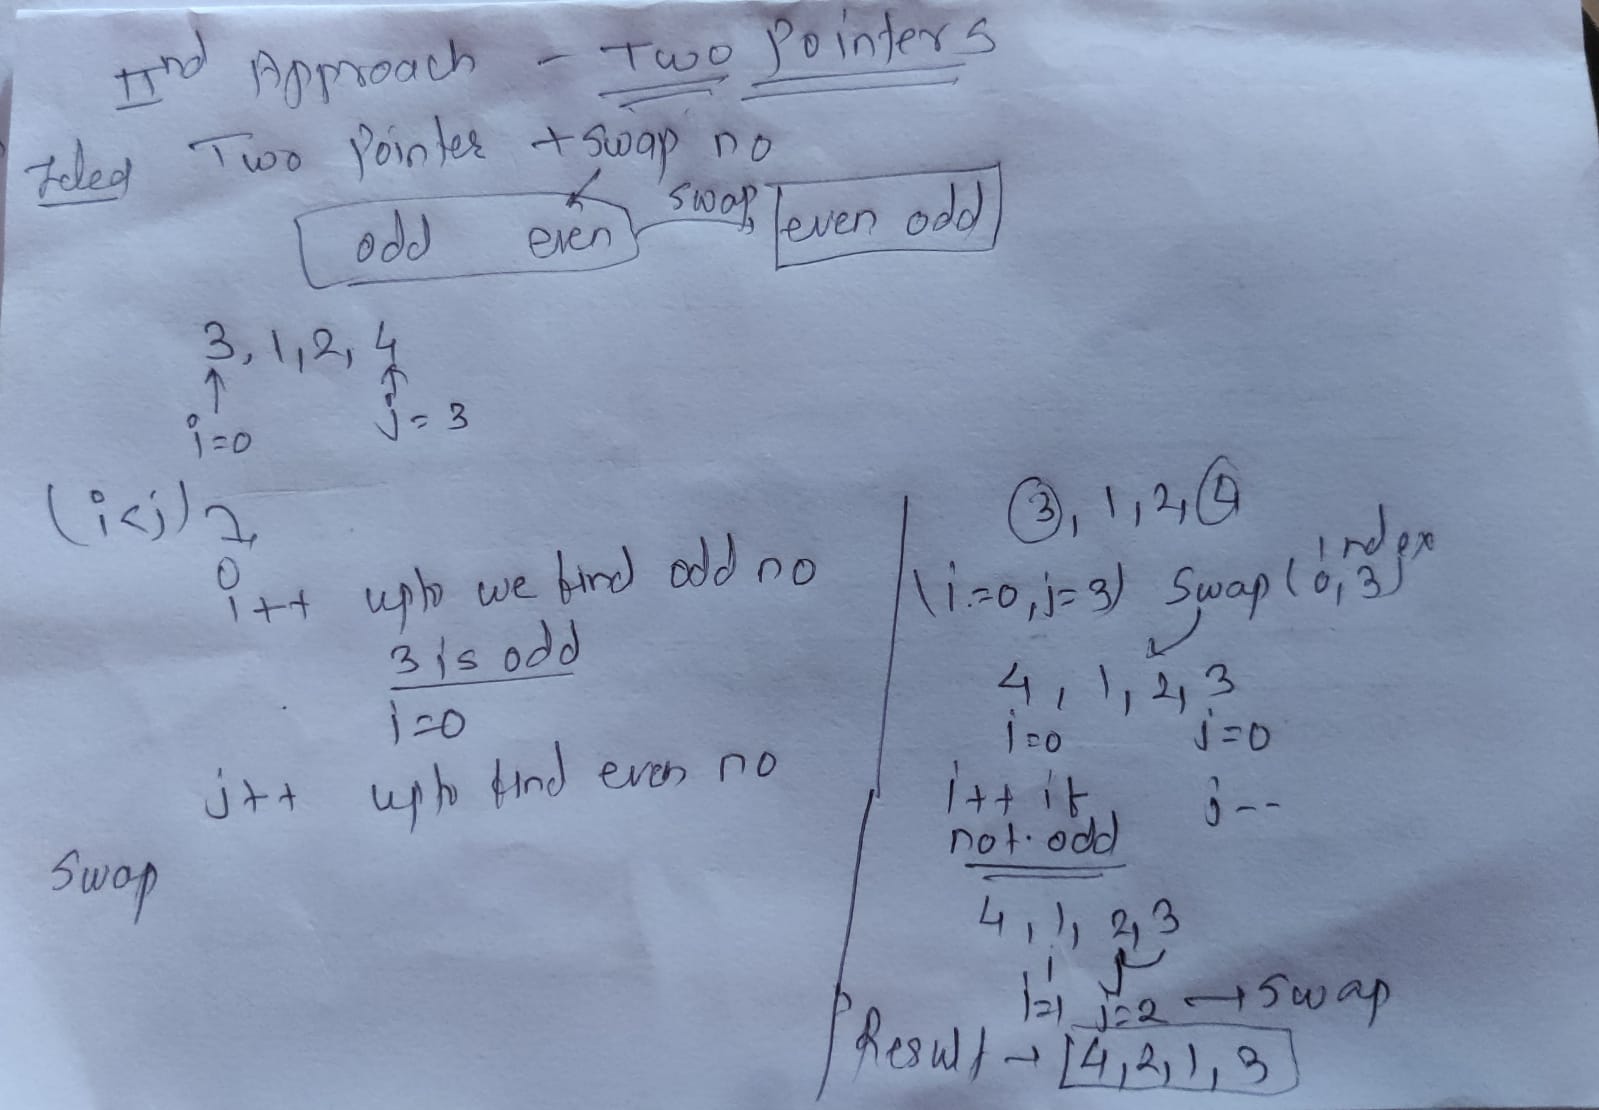 IInd Approach - Two Pointers
Idea Two Pointer + swap no
odd even swap even odd
3, 1, 2, 4
i=0 j=3
(i<j) {
i++ upto we find odd no
3 is odd
i=0
j++ upto find even no
Swap
3, 1, 2, 4
(i=0, j=3) Swap (0, 3) index
4, 1, 2, 3
i=0 j=0
i++ if j--
not odd
4, 1, 2, 3
i=1 j=2 → Swap
Result → [4, 2, 1, 3]